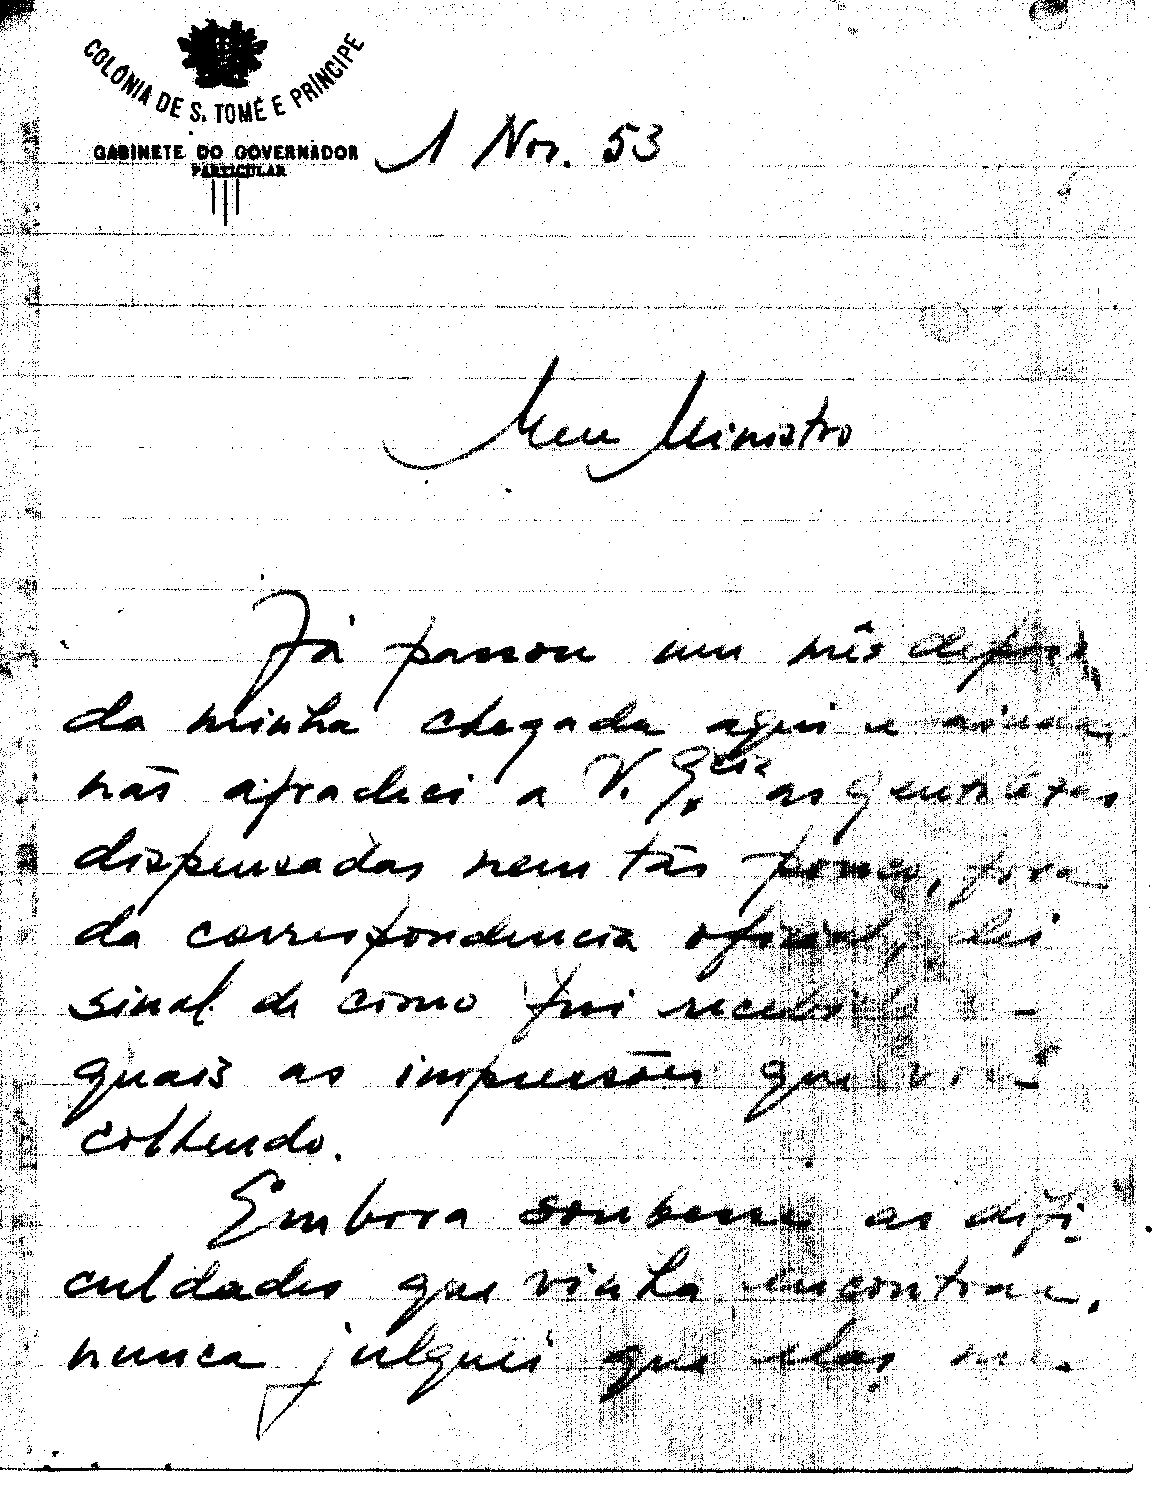 COLÓNIA DE S. TOMÉ E PRÍNCIPE
GABINETE DO GOVERNADOR
PARTICULAR
1 Nov. 53
Meu Ministro
Já passou um mês depois
da minha chegada aqui e ainda
não agradeci a V. Exa. as gentilezas
dispensadas nem tão pouco, fora
da correspondencia oficial, dei
sinal de como fui recebido e
quais as impressões que vou
colhendo.
Embora soubesse as difi-
culdades que vinha encontrar,
nunca julguei que elas